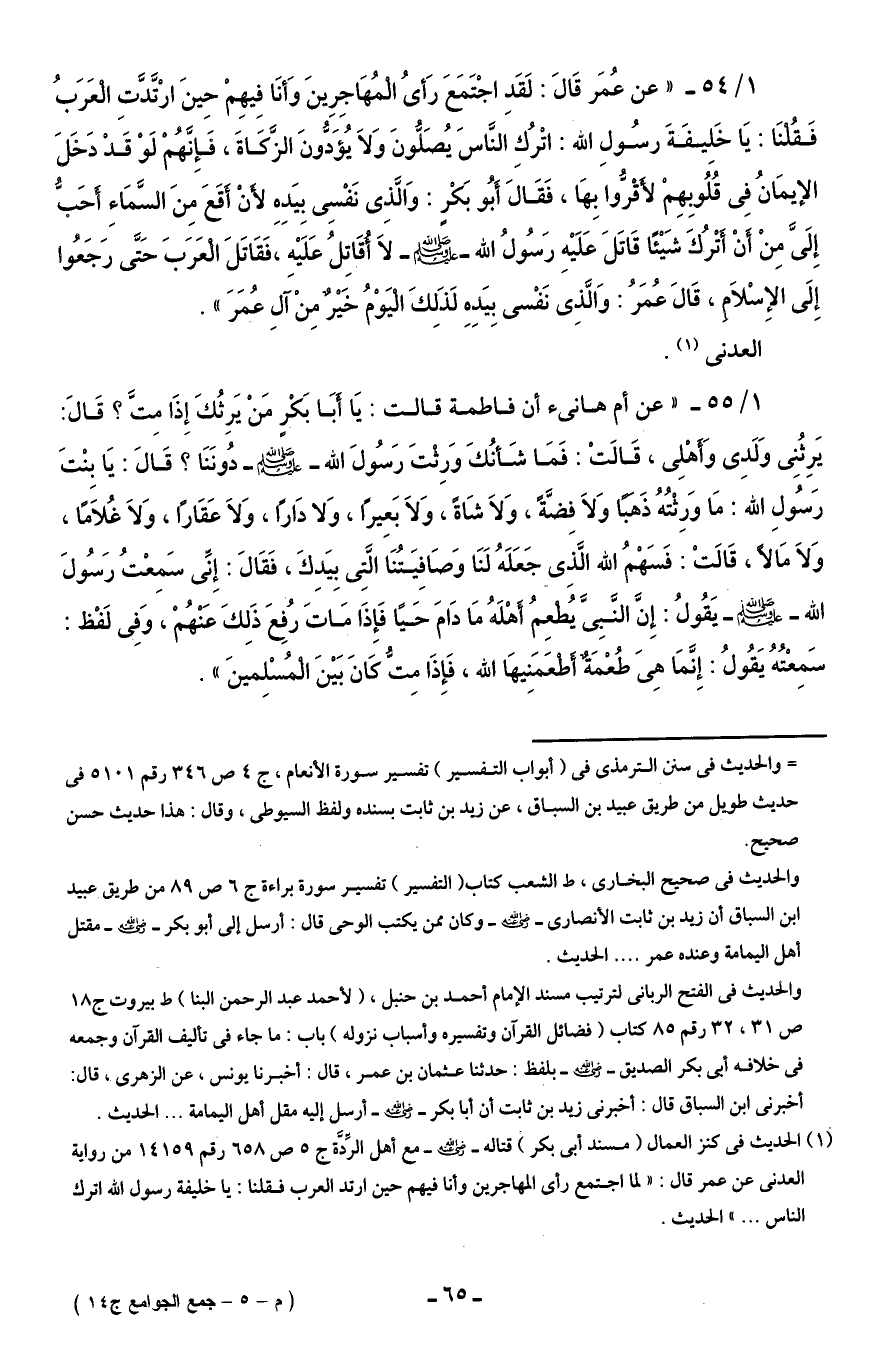 ١/ ٥٤ ـ « عن عُمَر قَالَ : لَقَد اجْتَمَعَ رَأىُ الْمُهَاجِرِينَ وَأنَا فِيهِمْ حينَ ارْتَّدَّتِ الْعَرَبُ
فَـقُلْنَا : يَا خَلِيـفَـةَ رسُـولِ الله : اتْرُكِ النَّاسَ يُصَلُّونَ وَلاَ يُؤَدُّونَ الزَّكَـاةَ ، فَـإِنَّهُمْ لَوْ قَـدْ دَخَلَ
الإيمَانُ فِى قُلُوبِهِمْ لأَقْرُّوا بِهَا ، فَقَـالَ أَبُو بَكْرٍ : وَالَّذِى نَفْسِى بِيَدِهِ لأَنْ أَقَعَ مِنَ السَّمَاءِ أَحَبُّ
إِلَىَّ مِنْ أَنْ أَتْرُكَ شَيْئًا قَاتَلَ عَلَيْهِ رَسُولُ الله ـ ﷺ ـ لاَ أُقَاتِلُ عَلَيْهِ ،فَقَاتَلَ الْعَرَبَ حَتَّى رَجَعُوا
إِلَى الإِسْلاَمِ ، قَالَ عُمَرُ : وَالَّذِى نَفْسِى بِيَدِهِ لَذَلِكَ الْيَوْمُ خَيْرٌ مِنْ آلِ عُمَرَ » .
العدنى (١) .
١/ ٥٥ ـ « عن أم هـانىء أن فـاطمـة قـالـت : يَا أَبَـا بَكْرٍ مَنْ يَرِثُكَ إِذَا مِتَّ ؟ قَـالَ:
يَرِثُنِى وَلَدِى وَأَهْلِى ، قَـالَتْ : فَمَـا شَـأْنُكَ وَرِثْتَ رَسُولَ الله ـ ﷺ ـ دُونَنَا ؟ قَـالَ : يَا بِنْتَ
رَسُولِ الله : مَا وَرِثْتُهُ ذَهَبًا وَلاَ فِضَّةً ، وَلاَ شَاةً ، وَلاَ بَعِيرًا ، وَلاَ دَارًا ، وَلاَ عَقَارًا ، وَلاَ غُلاَمًا ،
وَلاَ مَالاً ، قَالَتْ : فَسَهْمُ الله الَّذِى جَعَلَهُ لَنَا وَصَافِيَـتُنَا الَّتِى بِيَدِكَ ، فَقَالَ : إِنِّى سَمِعْتُ رَسُولَ
الله ـ ﷺ ـ يَقُولُ : إِنَّ النَّبِىَّ يُطْعِمُ أَهْلَهُ مَا دَامَ حَيـًا فَإِذَا مَـاتَ رُفِعَ ذَلِكَ عَنْهُمْ ، وَفِى لَفْظ :
سَمِعْتُهُ يَقُولُ : إِنَّمَا هِىَ طُعْمَةٌ أَطْعَمَنِيهَا الله ، فَإِذَا مِتُّ كَانَ بَيْنَ الْمُسْلِمِينَ » .
= والحديث فى سنن الـترمذى فى ( أبواب التـفسير ) تفسير سـورة الأنعام ، ج ٤ ص ٣٤٦ رقم ٥١٠١ فى
حديث طويل من طريق عبيد بن السبـاق ، عن زيد بن ثابت بسنده ولفظ السيوطى ، وقال : هذا حديث حسن
صحيح.
والحديث فى صحيح البخـارى ، ط الشعب كتاب( التفسير ) تفسيـر سورة براءة ج ٦ ص ٨٩ من طريق عبيد
ابن السباق أن زيد بن ثابت الأنصارى ـ رضي الله عنه ـ وكان ممن يكتب الوحى قال : أرسل إلى أبو بكر ـ رضي الله عنه ـ مقتل
أهل اليمامة وعنده عمر .... الحديث .
والحديث فى الفتح الربانى لترتيب مسند الإمام أحمـد بن حنبل ، ( لأحمد عبد الرحمن البنا ) ط بيروت ج١٨
ص ٣١ ، ٣٢ رقم ٨٥ كتاب ( فضائل القرآن وتفسيره وأسباب نزوله ) باب : ما جاء فى تأليف القرآن وجمعه
فى خلافـه أبى بكر الصديق ـ رضي الله عنه ـ بلفظ : حدثنا عـثمان بن عمـر ، قال : أخبـرنا يونس ، عن الزهرى ، قال:
أخبرنى ابن السباق قال : أخبرنى زيد بن ثابت أن أبا بكر ـ رضي الله عنه ـ أرسل إليه مقل أهل اليمامة ... الحديث .
(١) الحديث فى كنز العمال ( مـسند أبى بكر ) قتاله ـ رضي الله عنه ـ مع أهل الرِّدَّة ج ٥ ص ٦٥٨ رقم ١٤١٥٩ من رواية
العدنى عن عمر قال : « لما اجـتمع رأى المهاجرين وأنا فيهم حين ارتد العرب فـقلنا : يا خليفة رسول الله اترك
الناس ... » الحديث .
ـ ٦٥ ـ
( م - ٥ - جمع الجوامع ج١٤ )